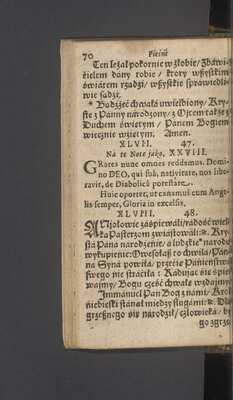 70 Pieśni
Ten leżał pokornie w żłobie / Zbáwi-
ćielem dány tobie / ktory wszystkim
świátem rządźi / wszystkie spráwiedli-
wie sądźi.
* Bądźżeć chwałá uwielbiony / Kry-
ste z Pánny národzony / z Oycem tákże z
Duchem świętym / Pánem Bogiem
wiecznie wźiętym. Amen.
XLVII. 47.
Ná tę Notę jáko, XXVIII.
GRates nunc omnes reddamus. Domi-
no DEO, qui suâ, nativitate, nos libe-
ravit, de Diabolicâ potestate.
Huic oportet, ut canamus cum Ange-
lis semper, Gloria in excelsis.
XLVIII. 48.
ANjołowie záśpiewáli / rádość wiel-
ką Pásterzom zwiástowáli: Kry-
stá Páná národzenie / á ludzkie národu
wykupienie: O wesołaś to chwilá / Pán-
ná Syná powiłá / przećie Pánieństwá
swego nie stráćiłá: Ráduiąc się ś pie-
wajmy / Bogu cześć chwałę wzdajmy
Immánuel Pan Bog z námi / Krol
niebieski stánął między sługámi: Dla
grzesznego się národźił / człowieká / by
go zgrze-